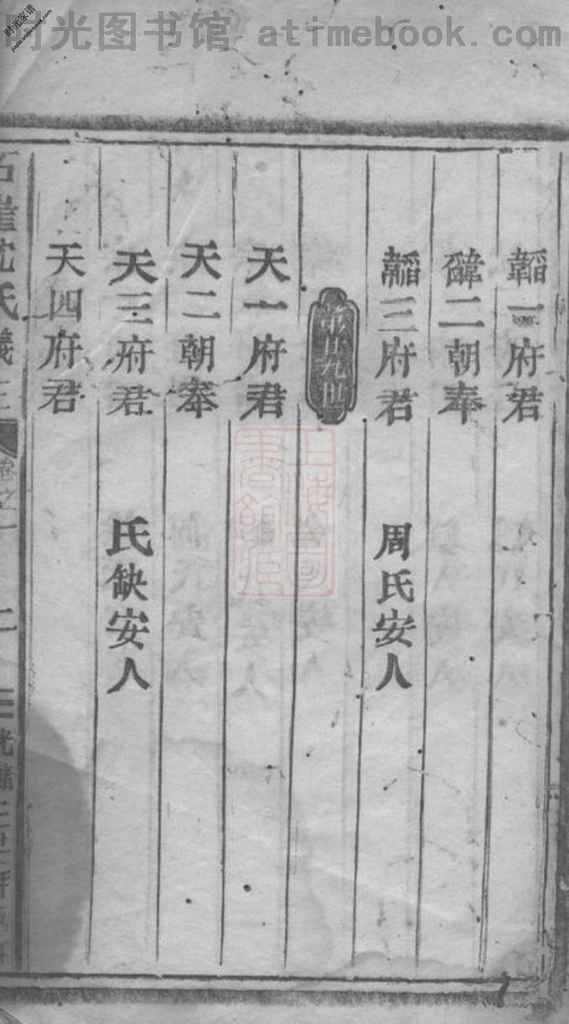 时光图书馆 - atimebook.com
韜一府君
韡二朝奉
韜三府君 周氏安人
廿九世
天一府君
天二朝奉
天三府君 氏缺安人
天四府君
沈氏
卷之一
二